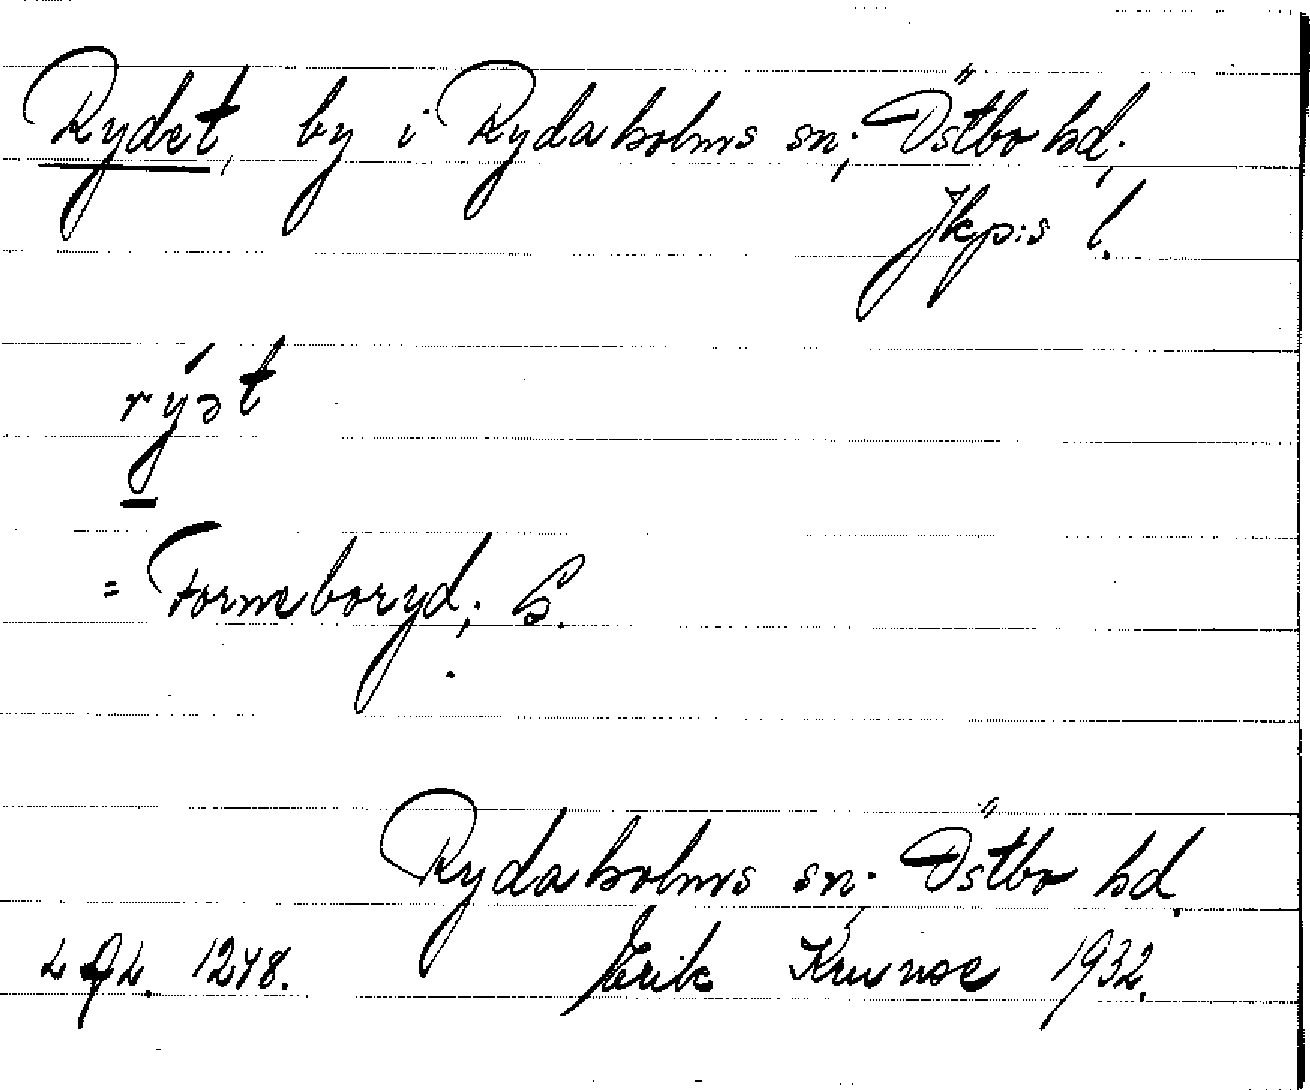 Rydet, by i Rydaholms sn; Östbo hd;
Jkp:s l.
rýət
= Formeboryd; S.
Rydaholms sn; Östbo hd.
1248. Erik 1932.